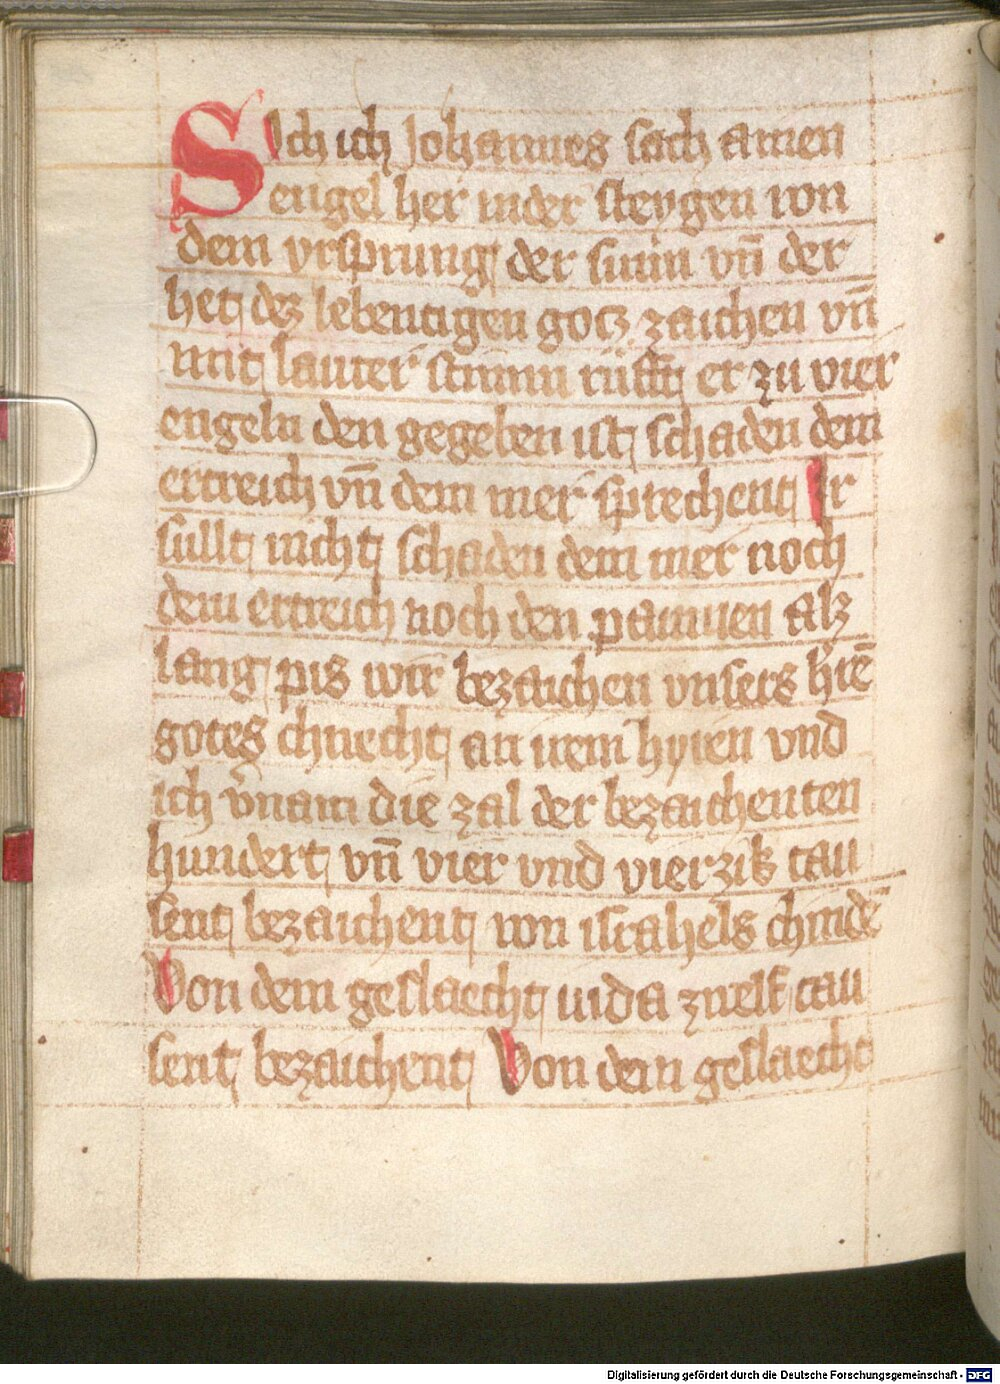 Sich ich Johannes sach ainen
engel her nider steygen von
dem vrsprung der sunn vn̄ der
het dez lebentigen gotz zaichen vn̄
mit lauter stimm rüfft er zu vier
engeln den gegeben ist schaden dem
ertreich vn̄ dem mer sprechent Ir
sullt nicht schaden dem mer noch
dem ertreich noch den paumen alz
lang pis wir bezaichen vnsers h̄re̅
gotes chnecht an irem hyren vnd
ich v̄nam die zal der bezaichenten
hundert vn̄ vier vnd vierzik tau
sent bezaichent von israhels chinde̅
Von dem geslaecht iuda zwelf tau
sent bezaichent Von dem geslaecht
Digitalisierung gefördert durch die Deutsche Forschungsgemeinschaft - DFG